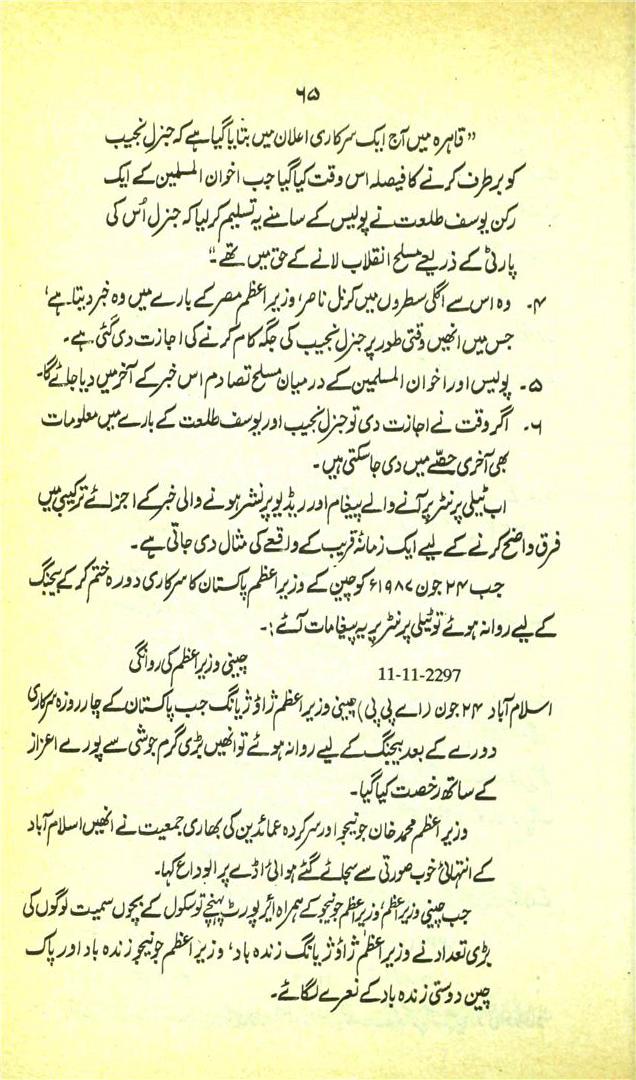 ۶۵
”قاہرہ میں آج ایک سرکاری اعلان میں بتایا گیا ہے کہ جنرل نجیب
کو برطرف کرنے کا فیصلہ اس وقت کیا گیا جب اخوان المسلمین کے ایک
رکن یوسف طلعت نے پولیس کے سامنے یہ تسلیم کرلیا کہ جنرل اُس کی
پارٹی کے ذریعے مسلح انقلاب لانے کے حق میں تھے۔“
۴۔ وہ اس سے اگلی سطروں میں کرنل ناصر، وزیراعظم مصر کے بارے میں وہ خبر دیتا ہے،
جس میں انھیں وقتی طور پر جنرل نجیب کی جگہ کام کرنے کی اجازت دی گئی ہے۔
۵۔ پولیس اور اخوان المسلمین کے درمیان مسلح تصادم اس خبر کے آخر میں دیا جائے گا۔
۶۔ اگر وقت نے اجازت دی تو جنرل نجیب اور یوسف طلعت کے بارے میں معلومات
بھی آخری حصّے میں دی جاسکتی ہیں۔
اب ٹیلی پرنٹر پر آنے والے پیغام اور ریڈیو پر نشر ہونے والی خبر کے اجزائے ترکیبی میں
فرق واضح کرنے کے لیے ایک زمانۂ قریب کے واقعے کی مثال دی جاتی ہے۔
جب ۲۴ جون ۱۹۸۷ء کو چین کے وزیراعظم پاکستان کا سرکاری دورہ ختم کرکے بیجنگ
کے لیے روانہ ہوئے تو ٹیلی پرنٹر پر یہ پیغامات آئے :۔
11-11-2297 چینی وزیراعظم کی روانگی
اسلام آباد ۲۴ جون (اے پی پی) چینی وزیراعظم ژاؤ ژیانگ جب پاکستان کے چار روزہ سرکاری
دورے کے بعد بیجنگ کے لیے روانہ ہوئے تو انھیں بڑی گرم جوشی سے پورے اعزاز
کے ساتھ رخصت کیا گیا۔
وزیراعظم محمد خان جونیجو اور سرکردہ عمائدین کی بھاری جمعیت نے انھیں اسلام آباد
کے انتہائی خوب صورتی سے سجائے گئے ہوائی اڈے پر الوداع کہا۔
جب چینی وزیراعظم، وزیراعظم جونیجو کے ہمراہ ایئرپورٹ پہنچے تو سکول کے بچوں سمیت لوگوں کی
بڑی تعداد نے وزیراعظم ژاؤ ژیانگ زندہ باد، وزیراعظم جونیجو زندہ باد اور پاک
چین دوستی زندہ باد کے نعرے لگائے۔